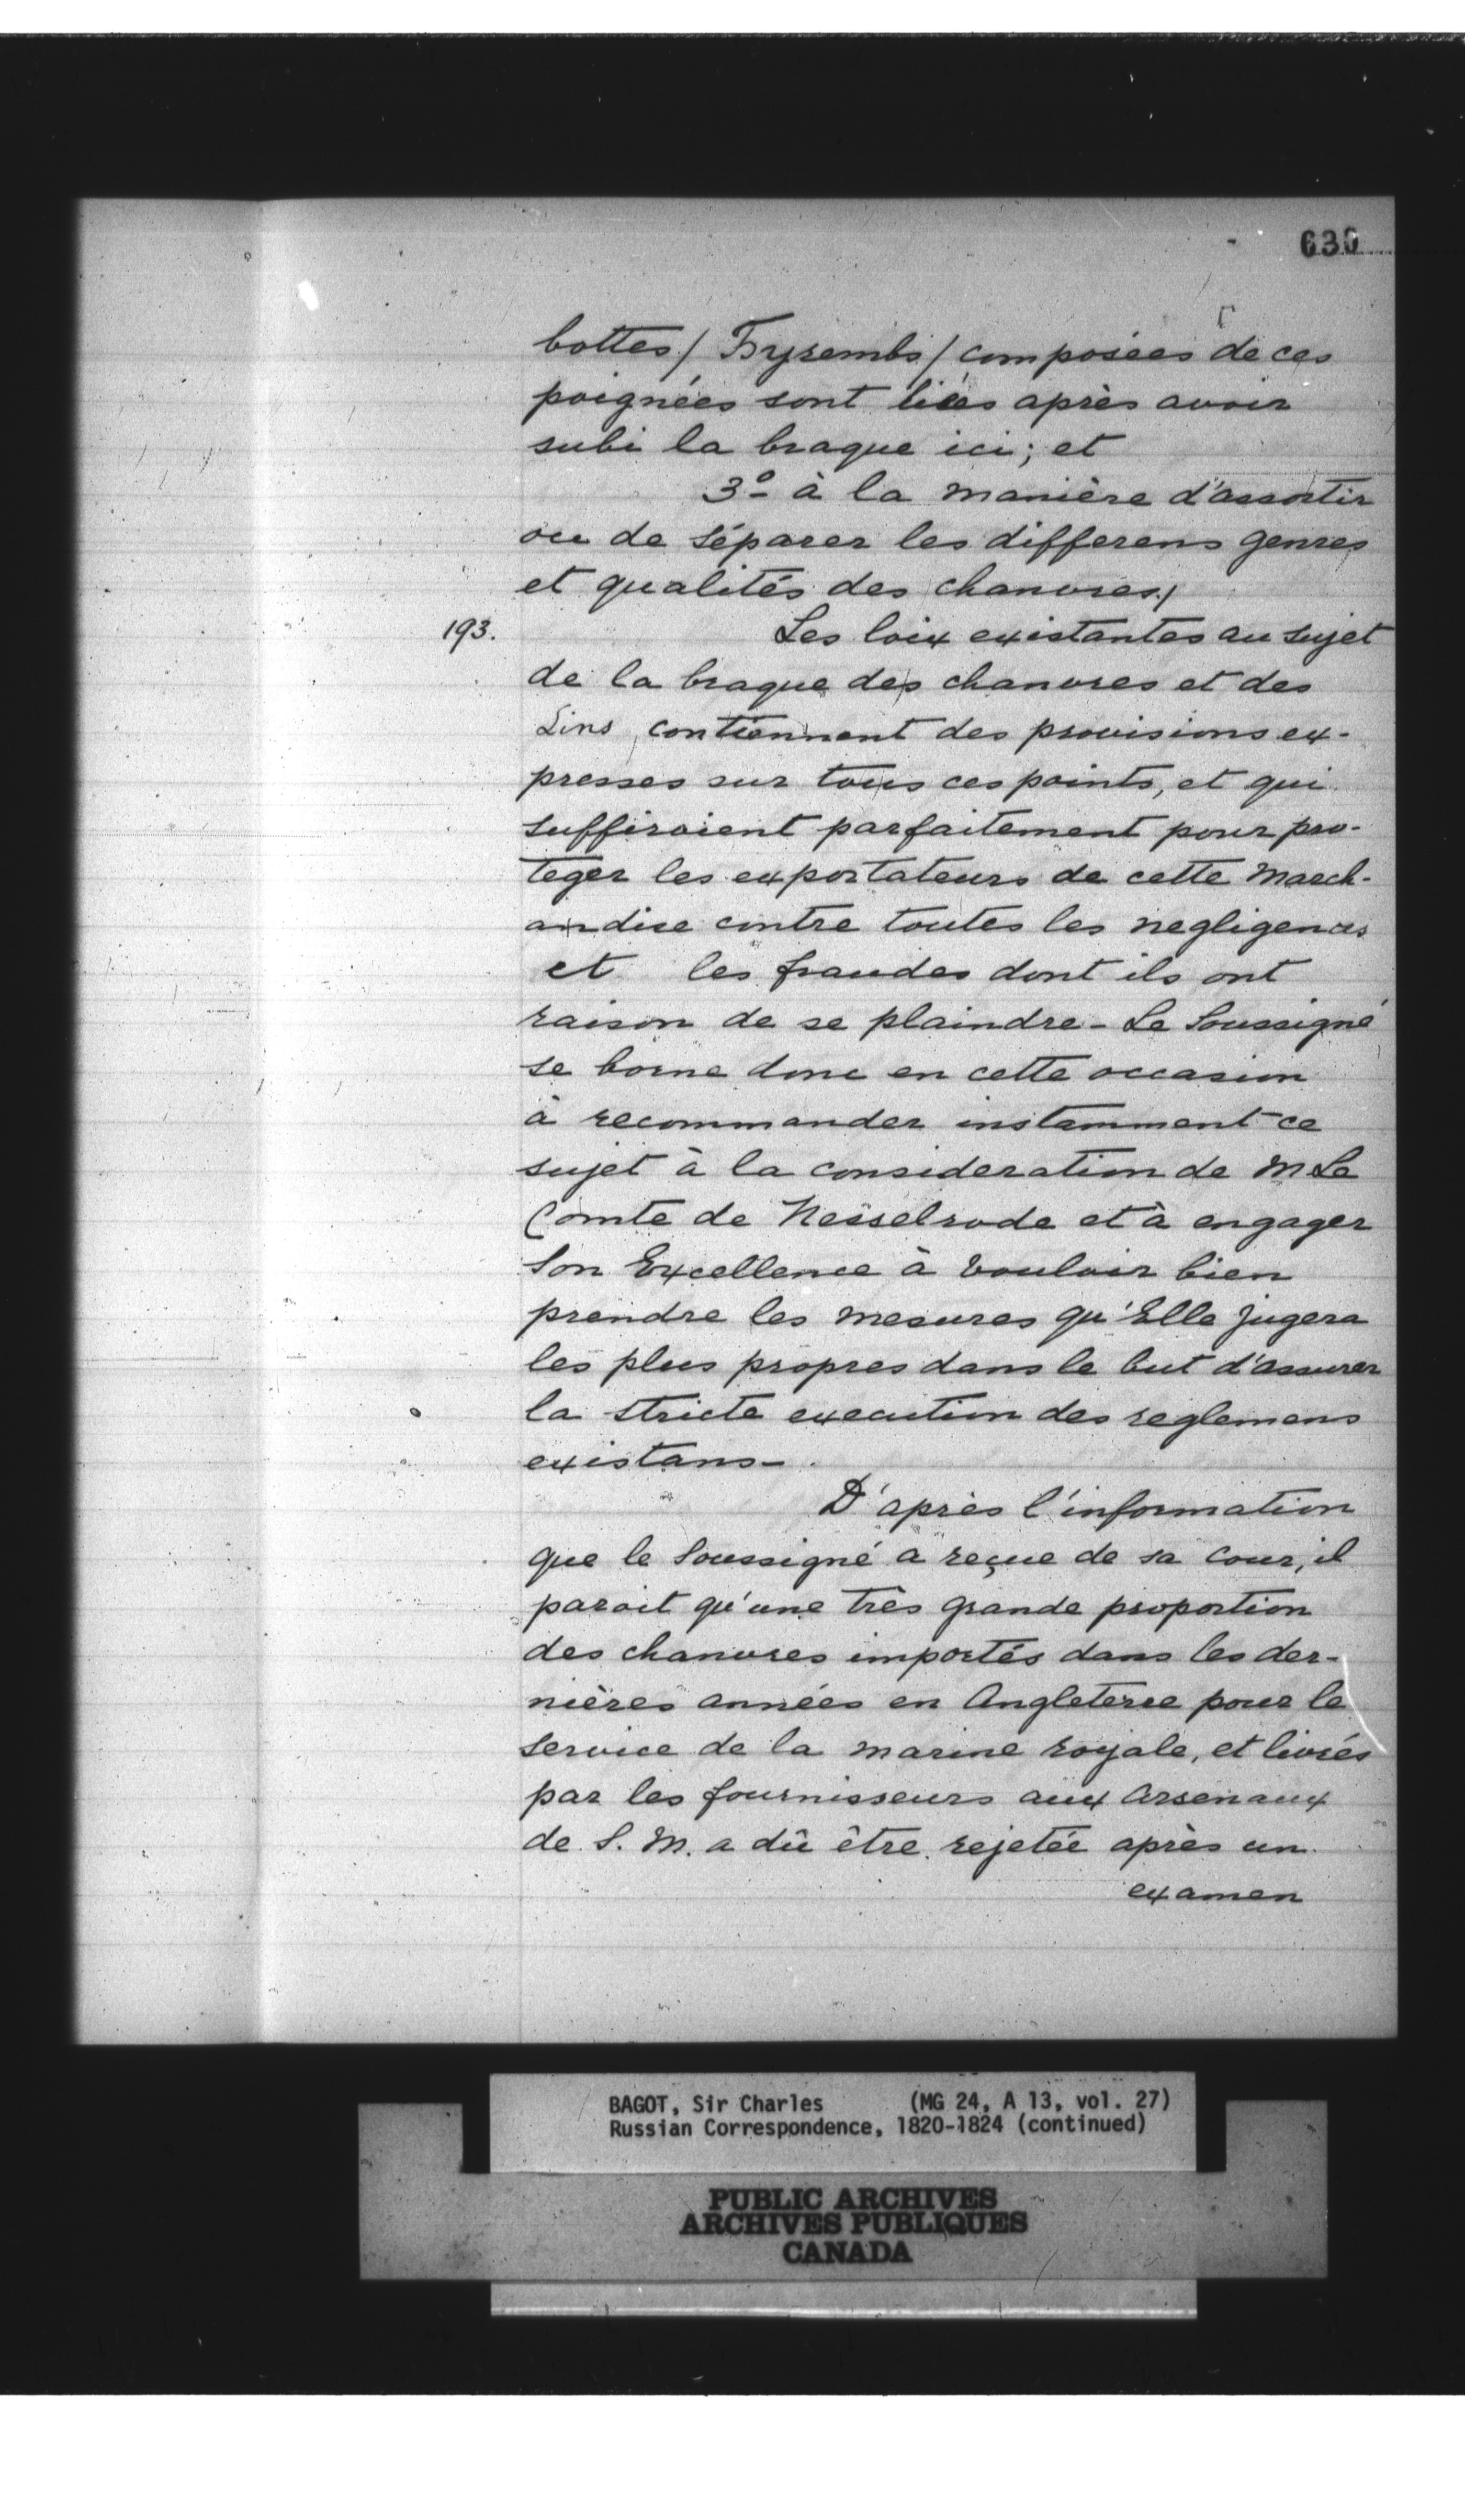 630
bottes / Tsyrembs / composées de ces
poignées sont liées après avoir
subi la braque ici; et
3º à la manière d'assortir
ou de séparer les differens genres
et qualités des chanvres./
193.
Les loix existantes au sujet
de la braque des chanvres et des
Lins contiennent des provisions ex-
presses sur tous ces points, et qui
suffiroient parfaitement pour pro-
teger les exportateurs de cette March-
andise contre toutes les negligences
et les fraudes dont ils ont
raison de se plaindre - Le Soussigné
se borne donc en cette occasion
à recommander instamment ce
sujet à la consideration de M Le
Comte de Nesselrode et à engager
Son Excellence à vouloir bien
prendre les mesures qu'Elle jugera
les plus propres dans le but d'assurer
la stricte execution des reglemens
existans -
D'après l'information
que le Soussigné a reçue de sa Cour, il
paroit qu'une très grande proportion
des chanvres importés dans les der-
nières années en Angleterre pour le
service de la marine royale, et livrés
par les fournisseurs aux Arsenaux
de S. M. a dû être rejetée après un
examen
BAGOT, Sir Charles (MG 24, A 13, vol. 27)
Russian Correspondence, 1820-1824 (continued)
PUBLIC ARCHIVES
ARCHIVES PUBLIQUES
CANADA